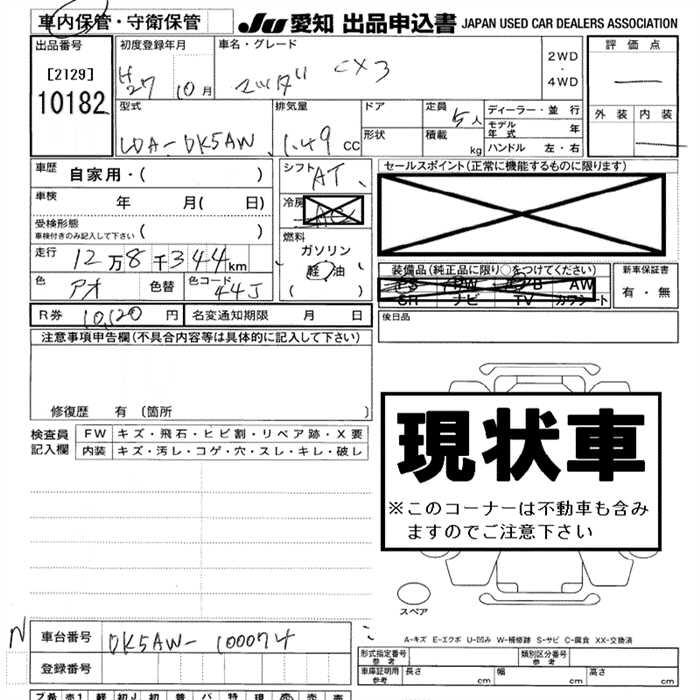 車内保管・守衛保管 JU 愛知 出品申込書 JAPAN USED CAR DEALERS ASSOCIATION
出品番号 初度登録年月 車名・グレード 評価点
[2129] H27 10月 マツダ CX3 2WD・4WD
10182
型式 排気量 ドア 定員 5人 ディーラー・並行 外装 内装
LDA-DK5AW 1.49cc 形状 積載 kg モデル年式 年
ハンドル 左・右
車歴 自家用・( ) シフト AT セールスポイント(正常に機能するものに限ります)
車検 年 月( 日) 冷房
受検形態 車検付きのみ記入して下さい ( ) 燃料
走行 12万8千344km ガソリン
軽油 ( )
色 アオ 色替 色コード 44J
装備品(純正品に限り○をつけてください) 新車保証書
PS PW AB AW 有・無
SR ナビ TV カワシート
R券 10,120円 名変通知期限 月 日 後日品
注意事項申告欄(不具合内容等は具体的に記入して下さい)
修復歴 有 〔箇所 〕
検査員記入欄 FW キズ・飛石・ヒビ割・リペア跡・X要
内装 キズ・汚レ・コゲ・穴・スレ・キレ・破レ
現状車
※このコーナーは不動車も含みますのでご注意下さい
スペア
N 車台番号 DK5AW-100074
登録番号
A-キズ E-エクボ U-凹み W-補修跡 S-サビ C-腐食 XX-交換済
形式指定番号 参考 類別区分番号 参考
車庫証明用 参考 長さ cm 幅 cm 高さ cm